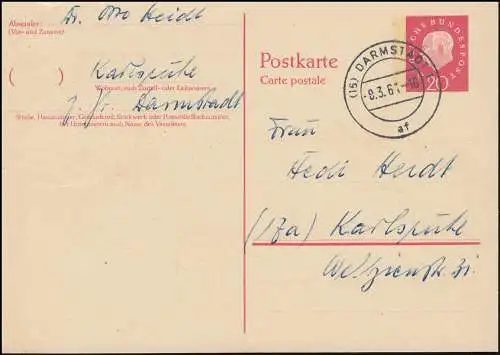 Absender:
(Vor- und Zuname)
Dr. Otto Heidt
( )
Karlsruhe
Wohnort, auch Zustell- oder Leitpostamt
z. Zt. Darmstadt
Straße, Hausnummer, Gebäudeteil, Stockwerk oder Postschließfachnummer,
bei Untermietern auch Name des Vermieters
Postkarte
Carte postale
(16) DARMSTADT
-8.3.61-16
af
DEUTSCHE BUNDESPOST
20
Frau
Hedi Heidt
(17a) Karlsruhe
Weltzienstr.